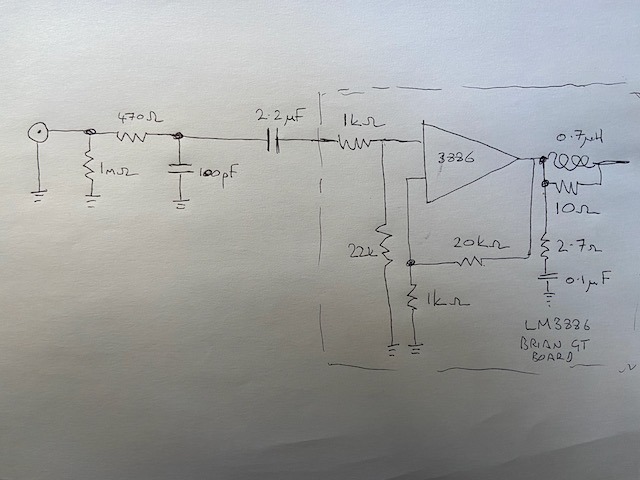 470Ω
1MΩ
100pF
2.2μF
1kΩ
22k
3886
20kΩ
1kΩ
0.7μH
10Ω
2.7Ω
0.1μF
LM3886
BRIAN GT
BOARD